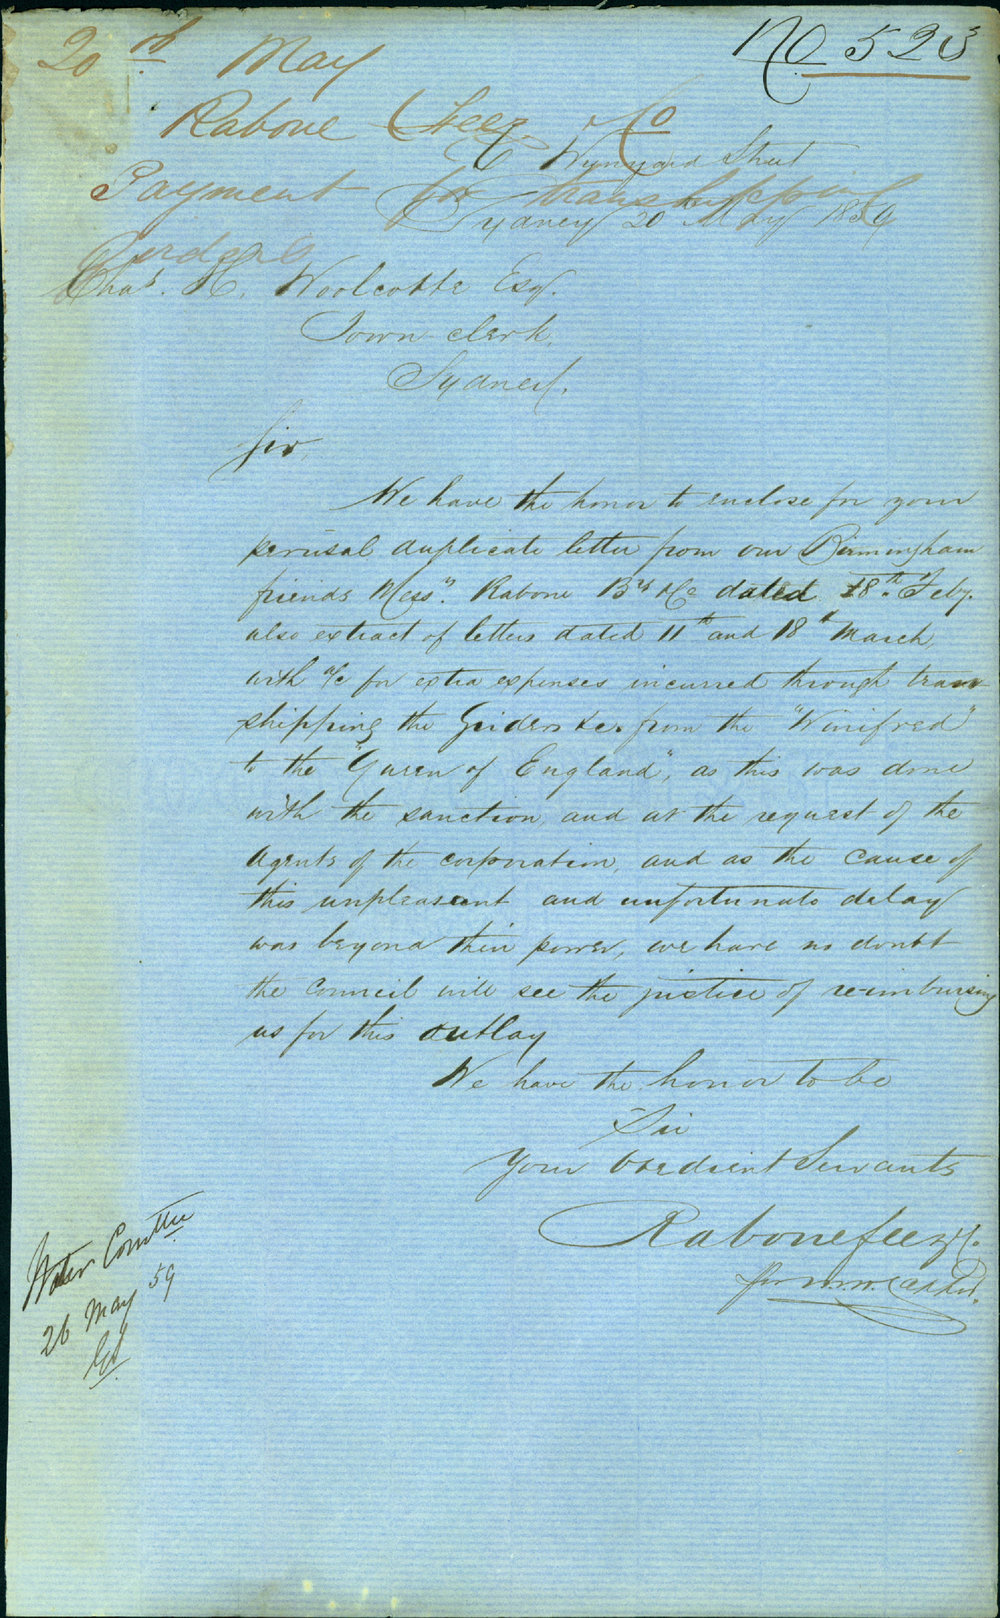 No 523
20th May
Rabone Feez & Co
Payment for transhipping
Girders
Wynyard Street
Sydney 20 May 1859
Chas. H. Woolcotte Esq.
Town Clerk,
Sydney.
Sir,
We have the honor to enclose for your
perusal duplicate letter from our Birmingham
friends Messrs. Rabone Brs & Co dated 18th Feby.
also extract of letters dated 11th and 18th March,
with a/c for extra expenses incurred through tran
shipping the Girders &c. from the "Winifred"
to the "Queen of England", as this was done
with the sanction, and at the request of the
Agents of the corporation, and as the cause of
this unpleasant and unfortunate delay
was beyond their power, we have no doubt
the Council will see the justice of re-imbursing
us for this outlay
We have the honor to be
Sir
Your Obedient Servants
Rabone Feez & Co.
for
Water Comttee
26 May 59